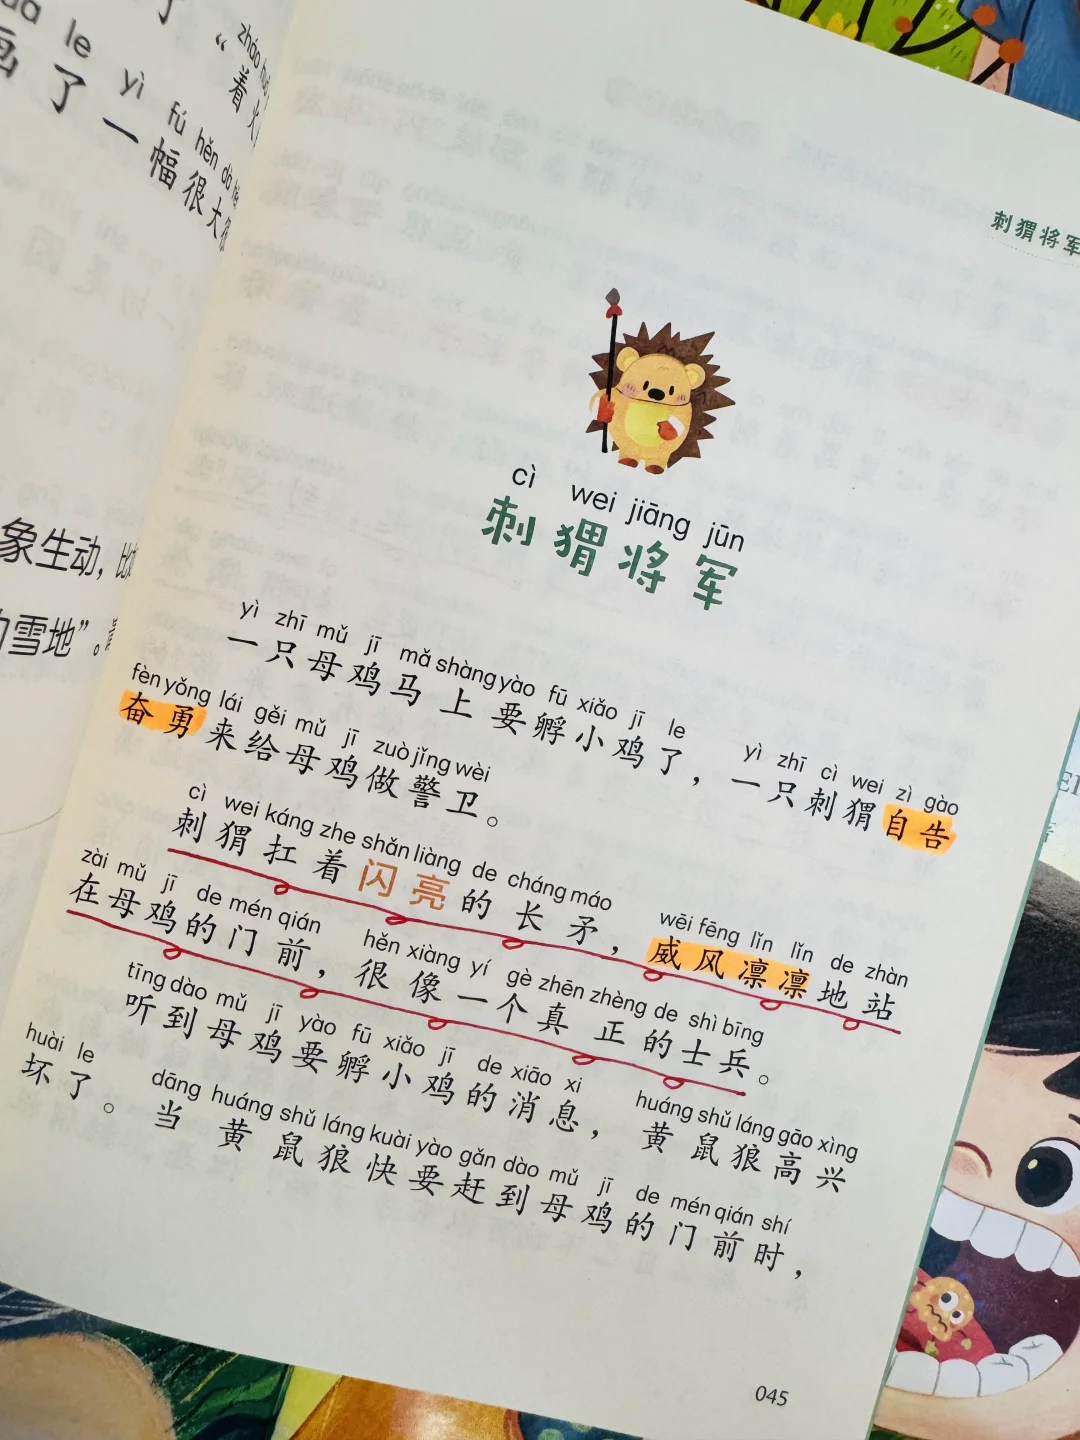 画了一幅很大
象生动，
的雪地”。
刺猬将军
cì wei jiāng jūn
刺猬将军
yì zhī mǔ jī mǎ shàng yào fū xiǎo jī le yì zhī cì wei zì gào
一只母鸡马上要孵小鸡了，一只刺猬自告
fèn yǒng lái gěi mǔ jī zuò jǐng wèi
奋勇来给母鸡做警卫。
cì wei káng zhe shǎn liàng de cháng máo wēi fēng lǐn lǐn de zhàn
刺猬扛着闪亮的长矛，威风凛凛地站
zài mǔ jī de mén qián hěn xiàng yí gè zhēn zhèng de shì bīng
在母鸡的门前，很像一个真正的士兵。
tīng dào mǔ jī yào fū xiǎo jī de xiāo xi huáng shǔ láng gāo xìng
听到母鸡要孵小鸡的消息，黄鼠狼高兴
huài le dāng huáng shǔ láng kuài yào gǎn dào mǔ jī de mén qián shí
坏了。当黄鼠狼快要赶到母鸡的门前时，
045